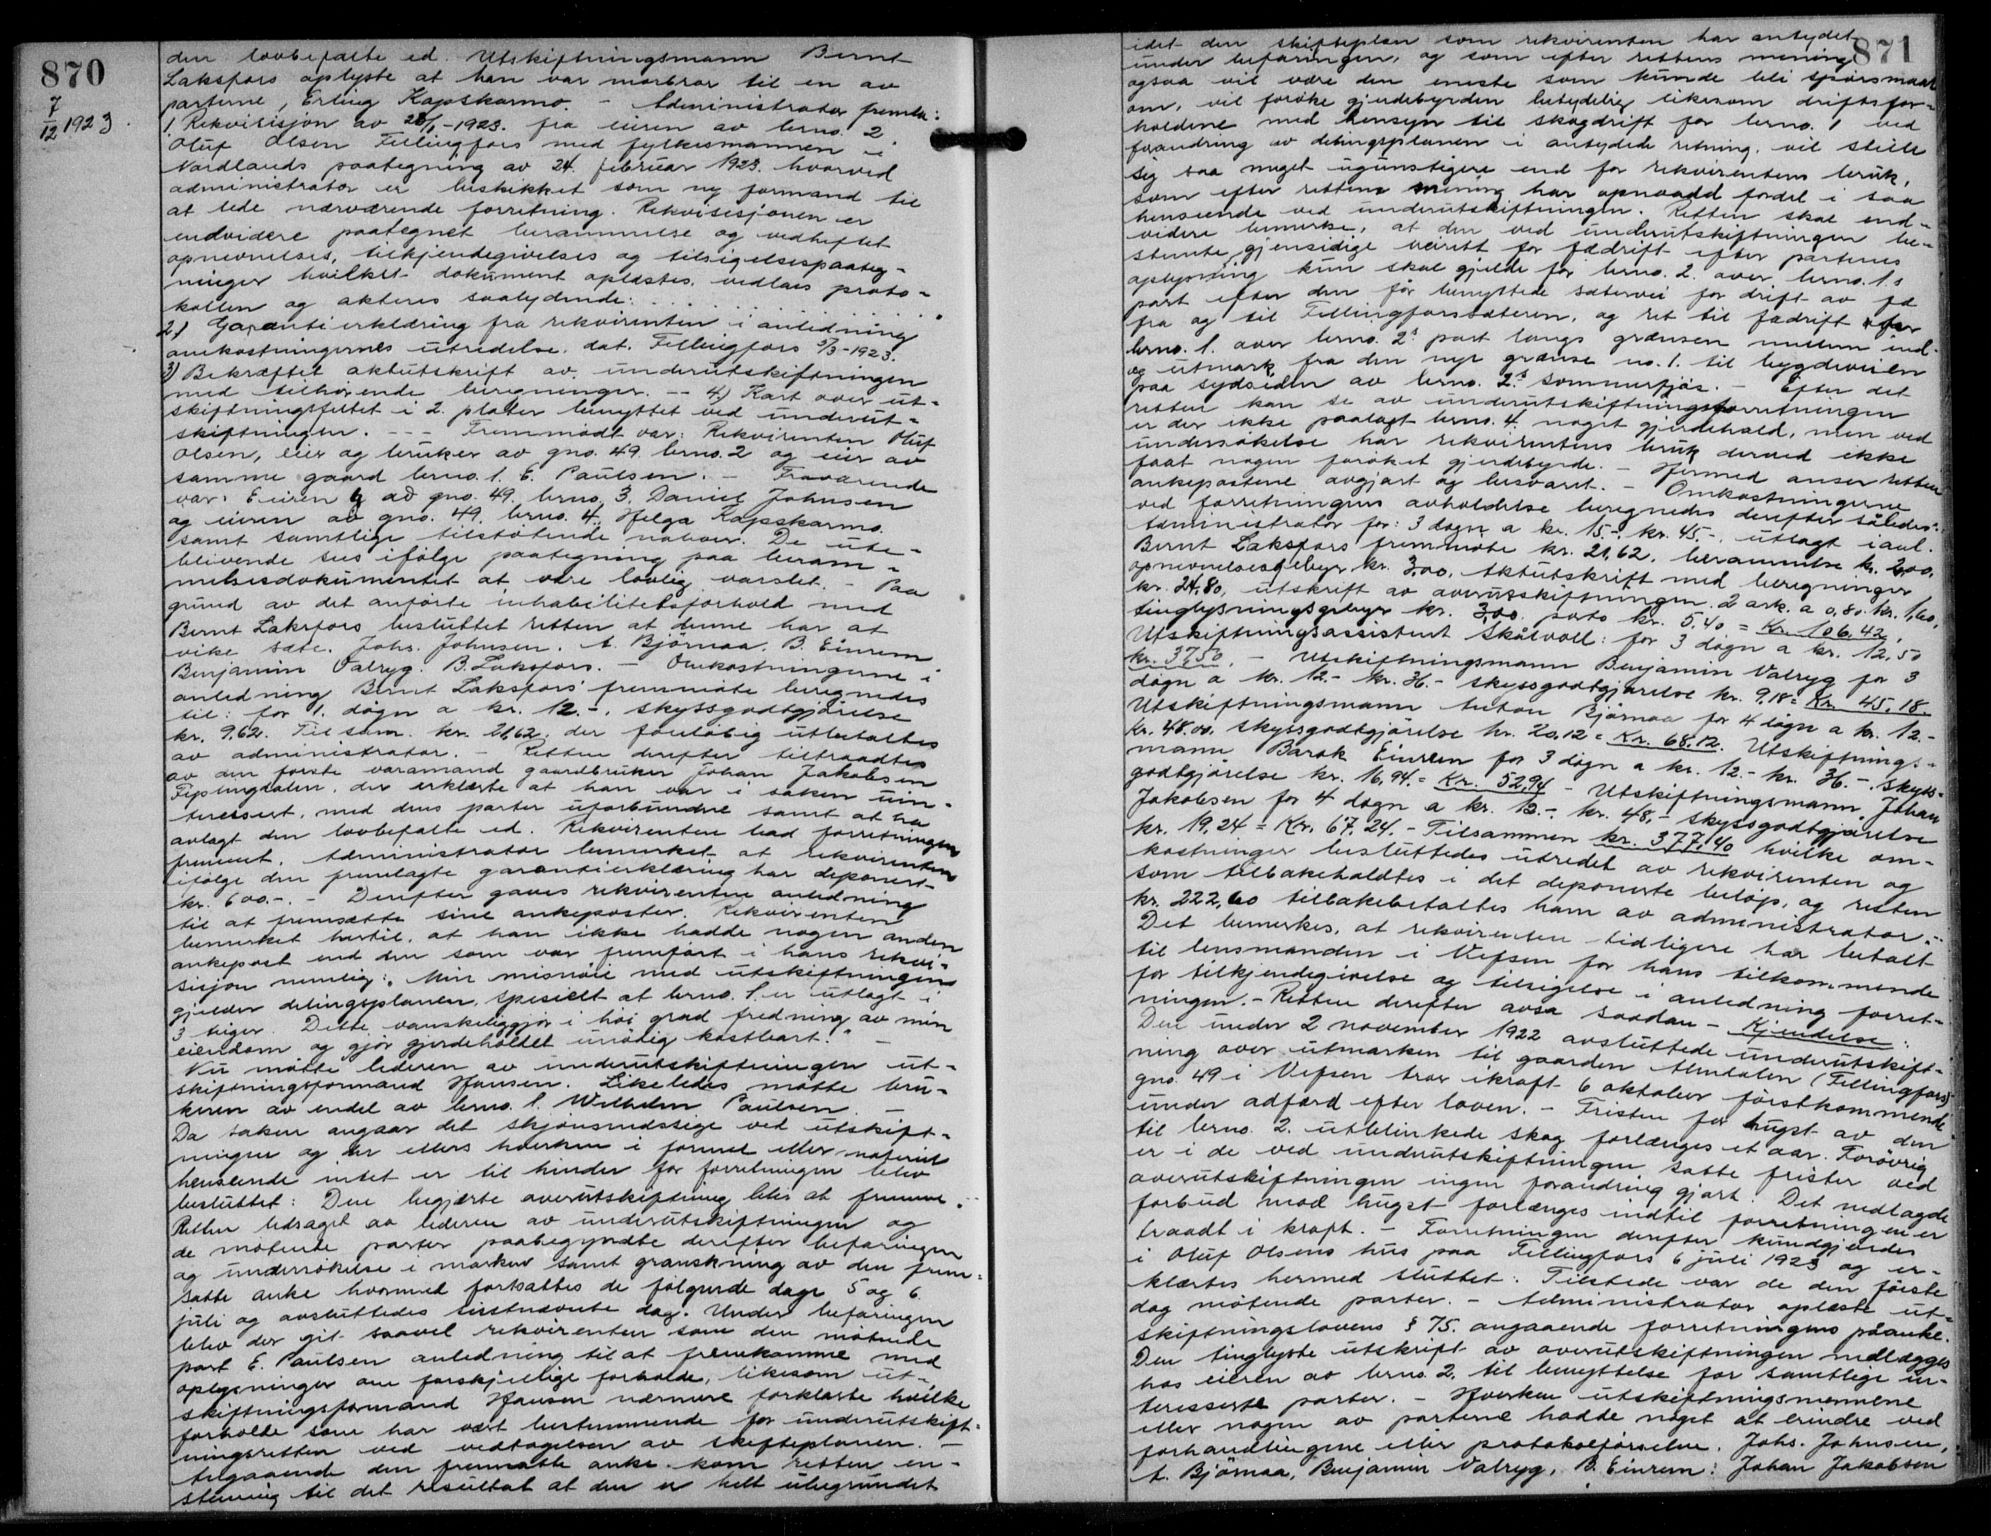 870
7/12 1923
den lovbefalte ed. Utskiftningsmann Bernt
Laksfors oplyste at han var morbror til en av
parterne, Erling Kapskarmo. - Administrator fremla:
1. Rekvisisjon av 28/1-1923. fra eieren av brno. 2
Oluf Olsen Fellingfors med fylkesmannen i
Nordlands paategning av 24. februar 1923. hvorved
administrator er beskikket som ny formand til
at lede nærværende forretning. Rekvisisjonen er
endvidere paategnet berammelse og vedheftet
opnevnelses, tilkjendegivelses og tilsigelsespaateg-
ninger hvilket dokument oplæstes, vedlaes proto-
kollen og akteres saalydende: . . . . . . . . .
2.) Garantierklæring fra rekvirenten i anledning
omkostningernes utredelse. dat. Fellingfors 5/3-1923.
3) Bekræftet aktutskrift av underutskiftningen
med tilhørende beregninger. -- 4.) Kart over ut-
skiftningsfeltet i 2. plater benyttet ved underut-
skiftningen. --- Fremmødt var: Rekvirenten Oluf
Olsen, eier og bruker av gno. 49 brno. 2 og eier av
samme gaard brno. 1. E. Paulsen. - Fraværende
var: Eieren av gno. 49. brno. 3. Daniel Johnsen
og eieren av gno. 49. brno. 4. Helga Kapskarmo.
samt samtlige tilstøtende naboer. De ute-
blivende sees ifølge paategning paa beram-
melsesdokumentet at være lovlig varslet. - Paa
grund av det anførte inhabilitetsforhold med
Bernt Laksfors besluttet retten at denne har at
vike sæte. Johs. Johnsen. A. Bjørnaa. B. Einrem
Benjamin Valryg. B. Laksfors. - Omkostningerne i
anledning Bernt Laksfors' fremmøte beregnedes
til: for 1. døgn a kr. 12.-. skyssgodtgjørelse
kr. 9,62. Tilsam. kr. 21,62. der foreløbig utbetaltes
av administrator. - Retten derefter tiltraadtes
av den første varamand gaardbruker Johan Jakobsen
Fiplingdalen, der erklærte at han var i saken uin-
teressert, med dens parter uforbundne samt at ha
avlagt den lovbefalte ed. Rekvirenten bad forretningen
fremmet. Administrator bemerket at rekvirenten
ifølge den fremlagte garantierklæring har deponert
kr. 600.-. - Derefter gaves rekvirenten anledning
til at fremsætte sine ankeposter. Rekvirenten
bemerket hertil, at han ikke hadde nogen anden
ankepost end den som var fremført i hans rekvi-
sisjon nemlig: "Min misnøie med utskiftningen
gjælder delingsplanen, spesielt at brno. 1. er utlagt i
3 teiger. Dette vanskeliggjør i høi grad fredning av min
eiendom og gjør gjerdeholdet unødig kostbart." -
Nu møtte lederen av underutskiftningen ut-
skiftningsformand Hansen. Likeledes møtte bru-
keren av endel av brno. 1. Wilhelm Paulsen. -
Da saken angaar det skjønsmæssige ved utskift-
ningen og der ellers hverken i formel eller materiel
henseende intet er til hinder for forretningen blev
besluttet: Den begjærte overutskiftning blir at fremme.
Retten ledsaget av lederen av underutskiftningen og
de møtende parter paabegyndte derefter befaringen
og undersøkelse i marken samt granskning av den frem-
satte anke hvormed fortsattes de følgende dage 5 og 6.
juli og avsluttedes sistnævnte dag. Under befaringen
blev der git saavel rekvirenten som den møtende
part E. Paulsen anledning til at fremkomme med
oplysninger om forskjellige forholde, likesom ut-
skiftningsformand Hansen nærmere forklarte hvilke
forholde som har vært bestemmende for underutskift-
ningsretten ved vedtagelsen av skifteplanen. -
Angaaende den fremsatte anke kom retten en-
stemmig til det resultat at den er helt ubegrundet
871
idet den skifteplan som rekvirenten har antydet
under befaringen, og som efter rettens mening
ogsaa vil være den eneste som kunde bli spørsmaal
om, vil forøke gjerdebyrden betydelig likesom driftsfor-
holdene med hensyn til skogdrift for brno. 1 ved
forandring av delingsplanen i antydede retning, vil stille
sig saa meget ugunstigere end for rekvirentens bruk,
som efter rettens mening har opnaadd fordel i saa
henseende ved underutskiftningen. Retten skal end-
videre bemerke, at den ved underutskiftningen be-
stemte gjensidige veirett for fædrift efter partenes
oplysning kun skal gjelde for brno. 2. over brno. 1.s
part efter den før benyttede sætervei for drift av fæ
fra og til Fellingforssæteren, og ret til fædrift for
brno. 1. over brno. 2s part langs grænsen mellem ind-
og utmark, fra den nye grænse no. 1. til bygdeveien
paa sydsiden av brno. 2.s sommerfjøs. - Efter det
retten kan se av underutskiftningsforretningen
er der ikke paalagt brno. 4 noget gjerdehold, men ved
undersøkelse har rekvirentens bruk derved ikke
faat nogen forøket gjerdebyrde. - Hermed anser retten
ankepostene avgjort og besvaret. - Omkostningerne
ved forretningens avholdelse beregnedes derefter således:
Administrator for: 3 døgn a kr. 15.-. kr. 45.-. utlagt i anl.
Bernt Laksfors fremmøte kr. 21,62. berammelse kr. 2,00.
opnevnelsesgebyr kr. 3,00. Aktutskrift med beregninger
kr. 24,80, utskrift av overutskiftningen. 2 ark. a 0,80. kr. 1,60,
tinglysningsgebyr kr. 3,00. porto kr. 5,40 = Kr. 106,42.
Utskiftningsassistent Skålvoll: for 3 døgn a kr. 12,50
kr. 37,50. - Utskiftningsmann Benjamin Valryg for 3
døgn a kr. 12.- kr. 36.- skyssgodtgjørelse kr. 9,18 = Kr. 45,18.
Utskiftningsmann Anton Bjørnaa for 4 døgn a kr. 12.-
Kr. 48.00. skyssgodtgjørelse kr. 20,12 = Kr. 68,12. Utskiftnings-
mann Barak Einrem for 3 døgn a kr. 12.- kr. 36.-. skyss-
godtgjørelse kr. 16,94. = Kr. 52,94 - Utskiftningsmann. Johan
Jakobsen for 4 døgn a kr. 12.-. kr. 48,- skyssgodtgjørelse
kr. 19,24 = Kr. 67,24. - Tilsammen kr. 377,40 hvilke om-
kostninger besluttedes utredet av rekvirenten og
som tilbakeholdtes i det deponerte beløp, og resten
kr. 222,60 tilbakebetaltes ham av administrator. -
Det bemerkes, at rekvirenten tidligere har betalt
til lensmanden i Vefsen for hans tilkommende
for tilkjendegivelse og tilsigelse i anledning forret-
ningen. - Retten derefter avsa saadan - Kjendelse:
Den under 2 november 1922 avsluttede underutskift-
ning over utmarken til gaarden Almdalen (Fellingfors)
gno. 49 i Vefsen træ ikraft 6 oktober førstkommende
under adfærd efter loven. - Fristen for hugst av den
til brno. 2. utblinkede skog forlænges et aar. Forøvrig
er i de ved underutskiftningen satte frister ved
overutskiftningen ingen forandring gjort. Det nedlagde
forbud mod hugst forlænges indtil forretningen er
traadt i kraft. - Forretningen derefter kundgjordes
i Oluf Olsens hus paa Fellingfors 6 juli 1923 og er-
klærtes hermed sluttet. Tilstede var de den første
dag møtende parter. - Administrator oplæste ut-
skiftningslovens § 75. angaaende forretningens påanke.
Den tinglyste utskrift av overutskiftningen nedlægges
hos eieren av brno. 2. til benyttelse for samtlige in-
teresserte parter. - Hverken utskiftningsmennene
eller nogen av parterne hadde noget at erindre ved
forhandlingene eller protokolførselen. Johs. Johnsen,
A. Bjørnaa, Benjamin Valryg, B. Einrem: Johan Jakobsen